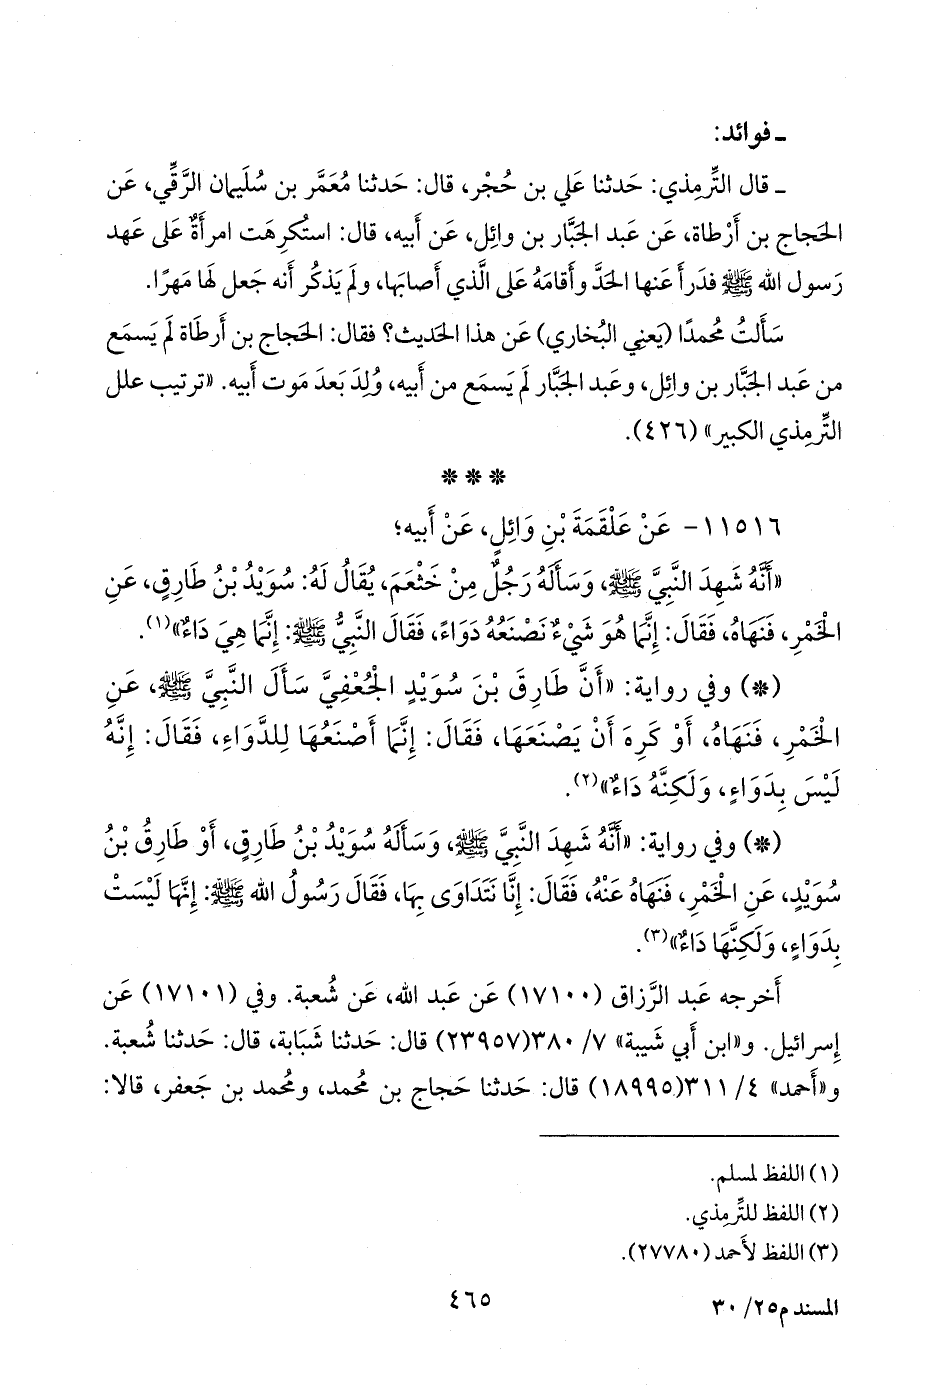 ـ فوائد:
ـ قال التِّرمِذي: حَدثنا عَلي بن حُجْر، قال: حَدثنا مُعَمَّر بن سُليمان الرَّقِّي، عَن
الحَجاج بن أَرْطاة، عَن عَبد الجَبَّار بن وائِل، عَن أَبيه، قال: استُكرِهَت امرأَةٌ عَلى عَهد
رَسول الله ﷺ فدَرأَ عَنها الحَدَّ وأَقامَهُ عَلى الَّذي أَصابَها، ولَم يَذكُر أَنه جَعل لَها مَهرًا.
سَأَلتُ مُحمدًا (يَعنِي البُخاري) عَن هذا الحَديث؟ فقال: الحَجاج بن أَرطَاة لَم يَسمَع
من عَبد الجَبَّار بن وائِل، وعَبد الجَبَّار لَم يَسمَع من أَبيه، وُلِدَ بَعدَ مَوت أَبيه. «ترتيب علل
التِّرمِذي الكبير» (٤٢٦).
* * *
١١٥١٦- عَنْ عَلْقَمَةَ بْنِ وَائِلٍ، عَنْ أَبيهِ؛
«أَنَّهُ شَهِدَ النَّبِيَّ ﷺ، وَسَأَلَهُ رَجُلٌ مِنْ خَثْعَمَ، يُقَالُ لَهُ: سُوَيْدُ بْنُ طَارِقٍ، عَنِ
الْخَمْرِ، فَنَهَاهُ، فَقَالَ: إِنَّمَا هُوَ شَيْءٌ نَصْنَعُهُ دَوَاءً، فَقَالَ النَّبِيُّ ﷺ: إِنَّمَا هِيَ دَاءٌ»(١).
(*) وفي رواية: «أَنَّ طَارِقَ بْنَ سُوَيْدٍ الْجُعْفِيَّ سَأَلَ النَّبِيَّ ﷺ، عَنِ
الْخَمْرِ، فَنَهَاهُ، أَوْ كَرِهَ أَنْ يَصْنَعَهَا، فَقَالَ: إِنَّمَا أَصْنَعُهَا لِلدَّوَاءِ، فَقَالَ: إِنَّهُ
لَيْسَ بِدَوَاءٍ، وَلَكِنَّهُ دَاءٌ»(٢).
(*) وفي رواية: «أَنَّهُ شَهِدَ النَّبِيَّ ﷺ، وَسَأَلَهُ سُوَيْدُ بْنُ طَارِقٍ، أَوْ طَارِقُ بْنُ
سُوَيْدٍ، عَنِ الْخَمْرِ، فَنَهَاهُ عَنْهُ، فَقَالَ: إِنَّا نَتَدَاوَى بِهَا، فَقَالَ رَسُولُ الله ﷺ: إِنَّهَا لَيْسَتْ
بِدَوَاءٍ، وَلَكِنَّهَا دَاءٌ»(٣).
أَخرجه عَبد الرَّزاق (١٧١٠٠) عَن عَبد الله، عَن شُعبة. وفي (١٧١٠١) عَن
إِسرائيل. و«ابن أَبي شَيبة» ٧/ ٣٨٠(٢٣٩٥٧) قال: حَدثنا شَبَابة، قال: حَدثنا شُعبة.
و«أَحمد» ٤/ ٣١١(١٨٩٩٥) قال: حَدثنا حَجاج بن مُحمد، ومُحمد بن جَعفر، قالا:
(١) اللفظ لمسلم.
(٢) اللفظ للتِّرمِذي.
(٣) اللفظ لأَحمد (٢٧٧٨٠).
المسند م٢٥/ ٣٠
٤٦٥